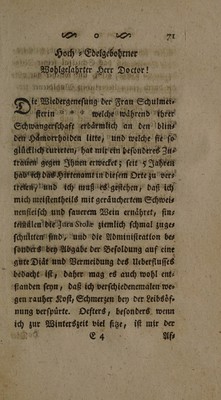 o 71
Hoch-Edelgebohrner
Wohlgelahrter Herr Doctor!
Die Wiedergenesung der Frau Schulmei-
sterin welche während ihrer
Schwangerschaft erbärmlich an den blin-
den Hämorrhoiden litte, und welche sie so
glücklich curirten, hat mir ein besonderes Zu-
trauen gegen Ihnen erwecket; seit 5 Jahren
had ich das Hirtenamt in diesem Orte zu ver-
treten, und ich muß es gestehen, daß ich
mich meistentheils mit geräuchertem Schwei-
nenfleisch und sauerem Wein ernähret, sin-
temallen die Jura Stolæ ziemlich schmal zuge-
schnitten sind, und die Administration be-
sonders bey Abgabe der Besoldung auf eine
gute Diät und Vermeidung des Ueberflusses
bedacht ist, daher mag es auch wohl ent-
standen seyn, daß ich verschiedenemalen we-
gen rauher Kost, Schmerzen bey der Leibsöf-
nung verspürte. Oefters, besonders wenn
ich zur Winterszeit viel size, ist mir der
E 4 Af-